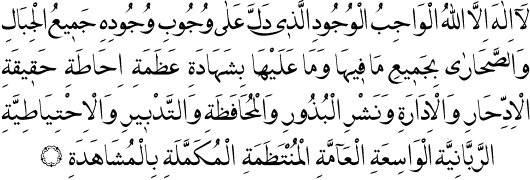 لَا اِلٰهَ اِلَّا اللهُ الْوَاجِبُ الْوُجُودِ الَّذ۪ى دَلَّ عَلٰى وُجُوبِ وُجُودِهِ جَم۪يعُ الْجِبَالِ
وَالصَّحَارٰى بِجَم۪يعِ مَا ف۪يهَا وَمَا عَلَيْهَا بِشَهَادَةِ عَظَمَةِ اِحَاطَةِ حَق۪يقَةِ
الْاِدِّخَارِ وَالْاِدَارَةِ وَنَشْرِ الْبُذُورِ وَالْمُحَافَظَةِ وَالتَّدْب۪يرِ وَالْاِحْتِيَاطِيَّةِ
الرَّبَّانِيَّةِ الْوَاسِعَةِ الْعَامَّةِ الْمُنْتَظَمَةِ الْمُكَمَّلَةِ بِالْمُشَاهَدَةِ ۞